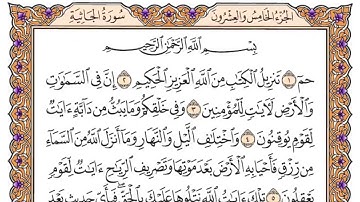 سُورَةُ الجَاثِيَةِ
الجُزْءُ الخَامِسُ وَالعِشْرُونَ
بِسْمِ اللَّهِ الرَّحْمَٰنِ الرَّحِيمِ
حمٓ ١ تَنزِيلُ الْكِتَٰبِ مِنَ اللَّهِ الْعَزِيزِ الْحَكِيمِ ٢ إِنَّ فِي السَّمَٰوَٰتِ
وَالْأَرْضِ لَءَايَٰتٍ لِّلْمُؤْمِنِينَ ٣ وَفِي خَلْقِكُمْ وَمَا يَبُثُّ مِن دَآبَّةٍ ءَايَٰتٌ
لِّقَوْمٍ يُوقِنُونَ ٤ وَاخْتِلَٰفِ الَّيْلِ وَالنَّهَارِ وَمَآ أَنزَلَ اللَّهُ مِنَ السَّمَآءِ
مِن رِّزْقٍ فَأَحْيَا بِهِ الْأَرْضَ بَعْدَ مَوْتِهَا وَتَصْرِيفِ الرِّيَٰحِ ءَايَٰتٌ لِّقَوْمٍ
يَعْقِلُونَ ٥ تِلْكَ ءَايَٰتُ اللَّهِ نَتْلُوهَا عَلَيْكَ بِالْحَقِّ ۖ فَبِأَيِّ حَدِيثٍ بَعْدَ